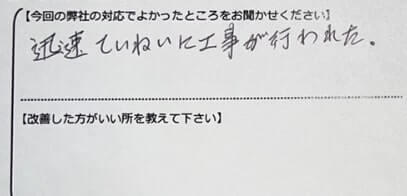 【今回の弊社の対応でよかったところをお聞かせください】
迅速ていねいに工事が行われた。
【改善した方がいい所を教えて下さい】